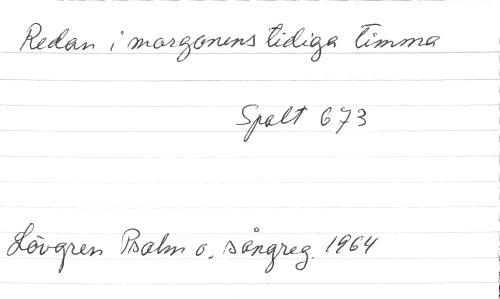 Redan i morgonens tidiga timma
Spalt 673
Lövgren Psalm o. sångreg. 1964